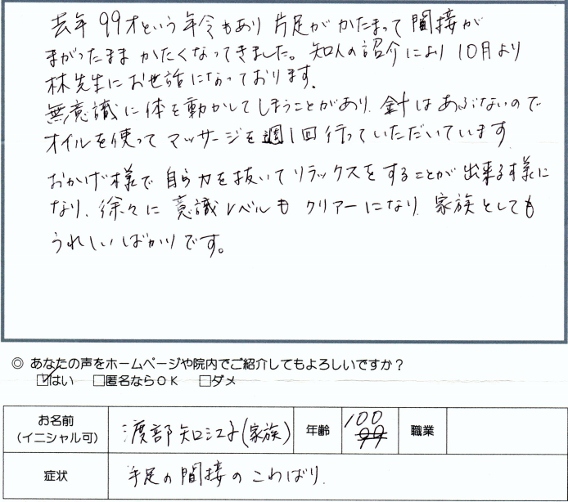 去年99才という年令もあり片足がかたまって間接が
まがったままかたくなってきました。知人の紹介により10月より
林先生にお世話になっております。
無意識に体を動かしてしまうことがあり、針はあぶないので
オイルを使ってマッサージを週1回行っていただいています
おかげ様で自ら力を抜いてリラックスをすることが出来る様に
なり、徐々に意識レベルもクリアーになり家族としても
うれしいばかりです。
◎ あなたの声をホームページや院内でご紹介してもよろしいですか?
☑はい □匿名ならOK □ダメ
お名前
(イニシャル可)
渡部知江子(家族)
年齢
100
99
職業
症状
手足の間接のこわばり.